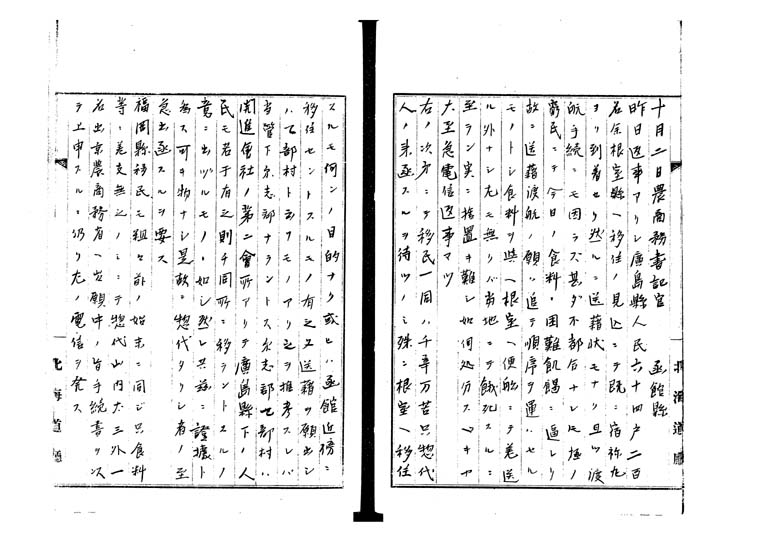 十月二日農商務書記官　函館縣
昨日返事アリシ廣島縣人民六十四戸二百
名余根室縣ヘ移住ノ見込ニテ既ニ宿祢丸
ヨリ到着セリ然ルニ送籍状モナク且ツ渡
航手続ニモ困ラズ甚ダ不都合ナレモ極ノ
窮民ニテ今日ノ食料ニ困難飢餲ニ逼レリ
故ニ送籍渡航ノ願ハ追テ順序ヲ運バセル
モノトシ食料ヲ与ヘ根室ヘ便船ニテ差送
ル外ナシ尤モ無クバ当地ニテ餓死スルニ
至ラン実ニ措置ヲ難シ如何処分スベキヤ
大至急電信返事マツ
右ノ次方ニテ移民一同ハ千辛万苦只惣代
人ノ来函スルヲ待ツノミ殊ニ根室ヘ移住
スルモ何ンノ目的ナク或ヒハ函館近傍ニ
移住セントスルモノ有之又送籍ヲ願出シ
ハ七部村ト云フモノアリ之ヲ推考スレバ
当管下久志部ナラントス久志部七部村ハ
開進會社ノ第二會所アリテ廣島縣下ノ人
民モ若干有之則チ同所ニ移ラントスルノ
意ニ出ヅルモノヽ如シ然レ共茲ニ證據ト
為ス可キ物ナシ是故ニ惣代タリシ者ノ至
急出函スルヲ要ス
福岡縣移民モ粗々前ノ始末ニ同ジ只食料
等ニ差支無之ノミニテ惣代山内大三外一
名出京農商務省ヘ出願中ノ旨手続書ヲ以
テ上申スルニ仍リ左ノ電信ヲ発ス
北海道廳